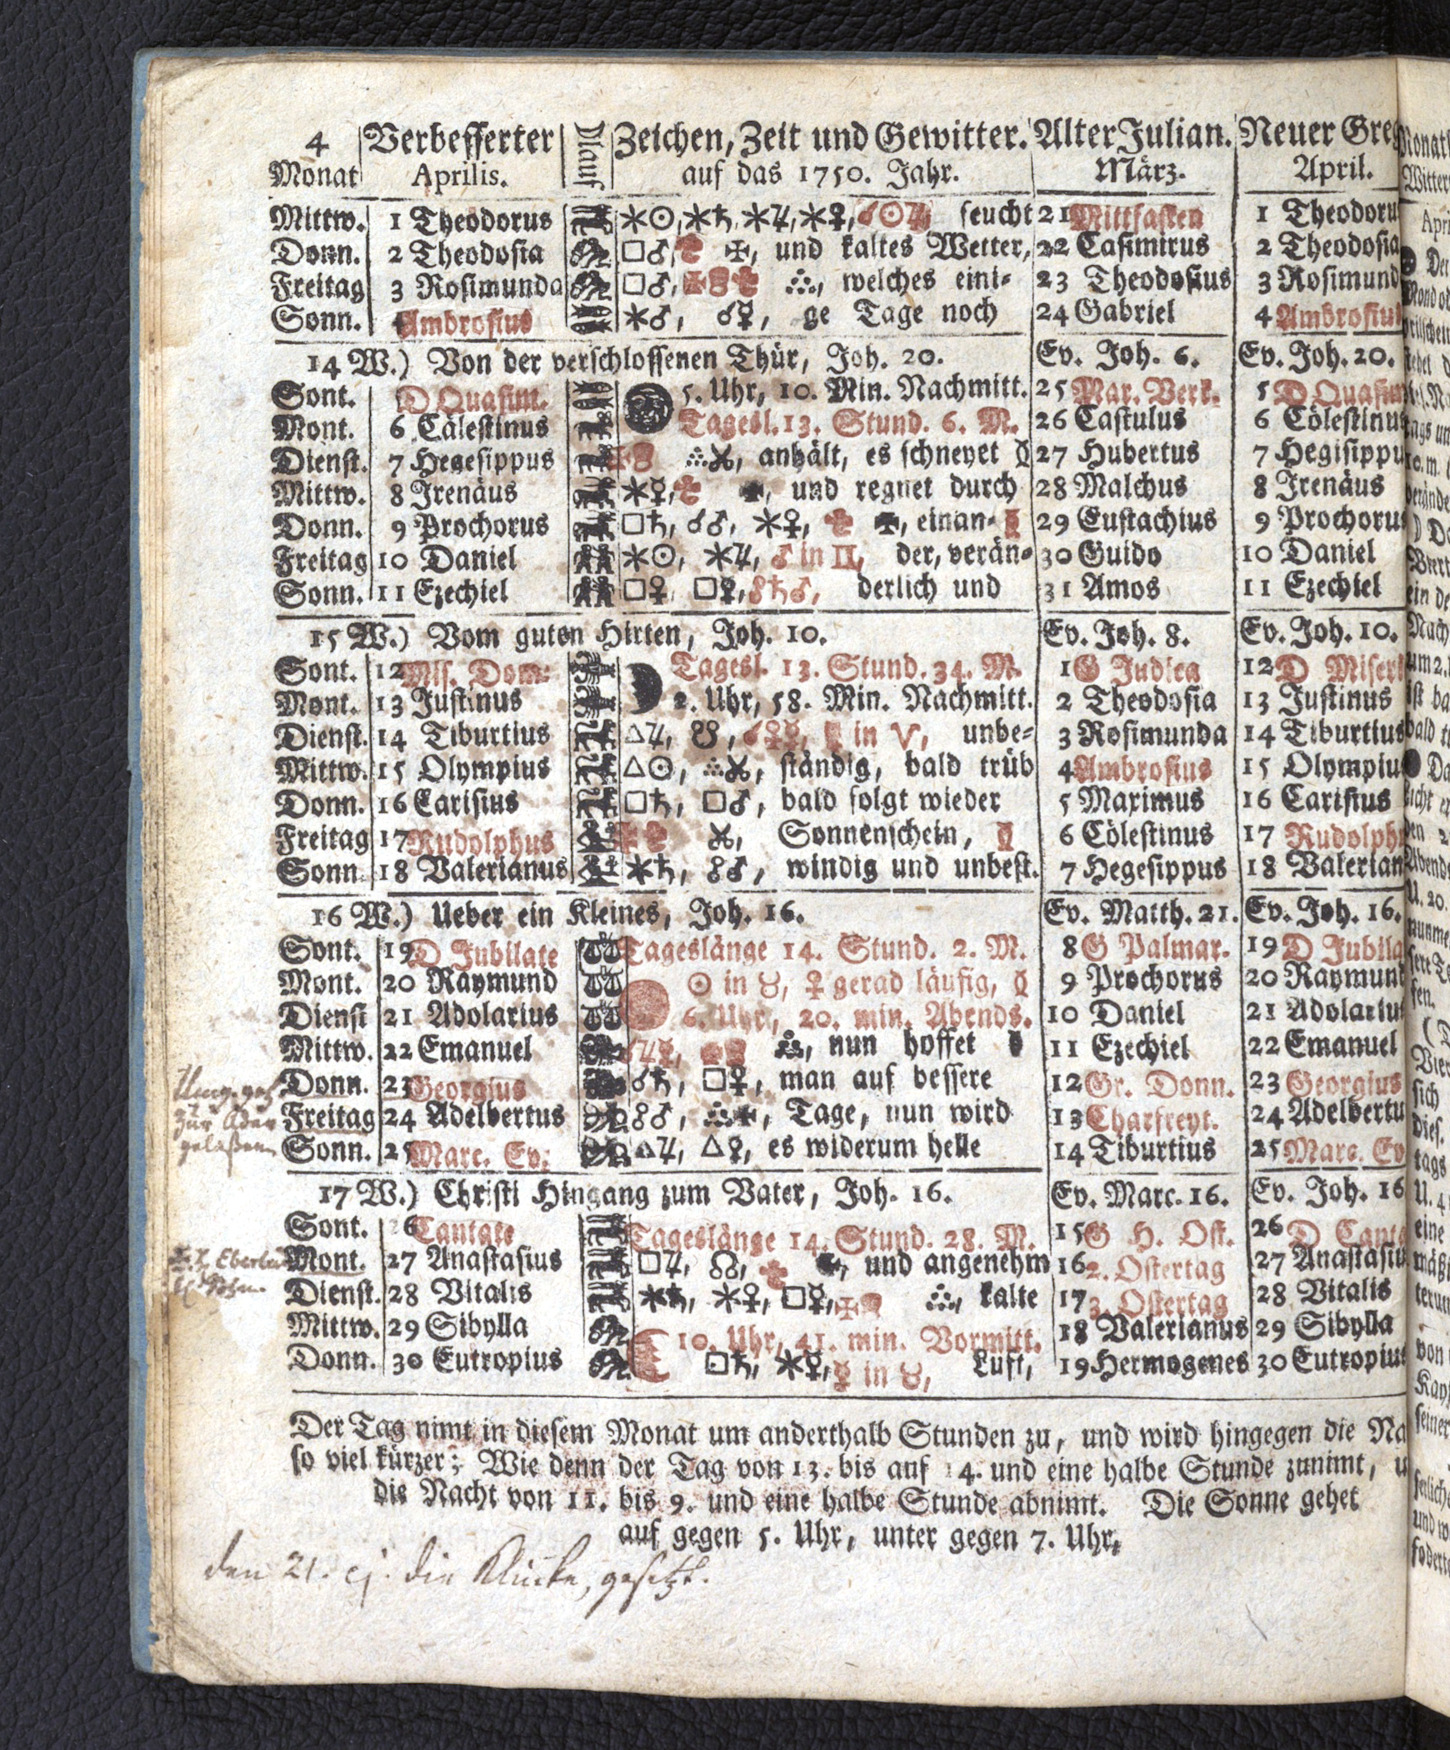 4 Verbesserter Dlauf Zeichen, Zeit und Gewitter. Alter Julian. Neuer Greg
Monat Aprilis. auf das 1750. Jahr. März. April.
Mittw. 1 Theodorus ⚹☉, ⚹♄, ⚹♃, ⚹♀, ☌☉♃, feucht 21 Mittfasten 1 Theodoru
Donn. 2 Theodosia □♂, ✠, und kaltes Wetter, 22 Casimirus 2 Theodosia
Freitag 3 Rosimunda □♂, welches eini- 23 Theodosius 3 Rosimund
Sonn. Ambrosius ⚹♂, ☌☿, ge Tage noch 24 Gabriel 4 Ambrosius
14 W.) Von der verschlossenen Thür, Joh. 20. Ev. Joh. 6. Ev. Joh. 20.
Sont. D Quasim. 5. Uhr, 10. Min. Nachmitt. 25 Mar. Verk. 5 D Quasim
Mont. 6 Cälestinus Tagesl. 13. Stund. 6. M. 26 Castulus 6 Cölestinus
Dienst. 7 Hegesippus anhält, es schneyet 27 Hubertus 7 Hegisippu
Mittw. 8 Irenäus ⚹☿, und regnet durch 28 Malchus 8 Irenäus
Donn. 9 Prochorus □♄, ☌♂, ⚹♀, einan- 29 Eustachius 9 Prochorus
Freitag 10 Daniel ⚹☉, ⚹♃, ♂ in II, der, verän- 30 Guido 10 Daniel
Sonn. 11 Ezechiel □♀, □☿, ☍♄♂, derlich und 31 Amos 11 Ezechiel
15 W.) Vom guten Hirten, Joh. 10. Ev. Joh. 8. Ev. Joh. 10.
Sont. 12 Mis. Dom: Tagesl. 13. Stund. 34. M. 1 G Judica 12 D Miseri
Mont. 13 Justinus 2. Uhr, 58. Min. Nachmitt. 2 Theodosia 13 Justinus
Dienst. 14 Tiburtius △♃, ☋, ☌♀☿, in ♈, unbe- 3 Rosimunda 14 Tiburtius
Mittw. 15 Olympius △☉, ständig, bald trüb 4 Ambrosius 15 Olympiu
Donn. 16 Carisius □♄, □♂, bald folgt wieder 5 Maximus 16 Carisius
Freitag 17 Rudolphus Sonnenschein, 6 Cölestinus 17 Rudolph
Sonn. 18 Valerianus ⚹♄, ☍♂, windig und unbest. 7 Hegesippus 18 Valerian
16 W.) Ueber ein Kleines, Joh. 16. Ev. Matth. 21. Ev. Joh. 16.
Sont. 19 D Jubilate Tageslänge 14. Stund. 2. M. 8 G Palmar. 19 D Jubila
Mont. 20 Raymund ☉ in ♉, ☿ gerad läufig, 9 Prochorus 20 Raymund
Dienst 21 Adolarius 6. Uhr, 20. min. Abends. 10 Daniel 21 Adolarius
Mittw. 22 Emanuel nun hoffet 11 Ezechiel 22 Emanuel
Donn. 23 Georgius ☌♄, □♀, man auf bessere 12 Gr. Donn. 23 Georgius
Freitag 24 Adelbertus ☍♂, Tage, nun wird 13 Charfreyt. 24 Adelbertu
zur Ader
Sonn. 25 Marc. Ev. △♃, △☿, es widerum helle 14 Tiburtius 25 Marc. Ev
gelaßen
17 W.) Christi Hingang zum Vater, Joh. 16. Ev. Marc. 16. Ev. Joh. 16
Sont. 26 Cantate Tageslänge 14. Stund. 28. M. 15 G H. Ost. 26 D Canta
Mont. 27 Anastasius □♃, ☊, und angenehm 16 2. Ostertag 27 Anastasiu
Dienst. 28 Vitalis ⚹♄, ⚹♀, □☿, kalte 17 3. Ostertag 28 Vitalis
Mittw. 29 Sibylla 10. Uhr, 41. min. Vormitt. 18 Valerianus 29 Sibylla
Donn. 30 Eutropius □♄, ⚹☿, ☿ in ♉, Luft, 19 Hermogenes 30 Eutropius
Der Tag nimt in diesem Monat um anderthalb Stunden zu, und wird hingegen die Na
so viel kürzer; Wie denn der Tag von 13. bis auf 14. und eine halbe Stunde zunimt, u
die Nacht von 11. bis 9. und eine halbe Stunde abnimt. Die Sonne gehet
auf gegen 5. Uhr, unter gegen 7. Uhr,
den 21. ej. die Klucke, gesetzt.